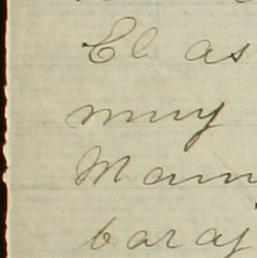 El as
muy
Mam
baraj